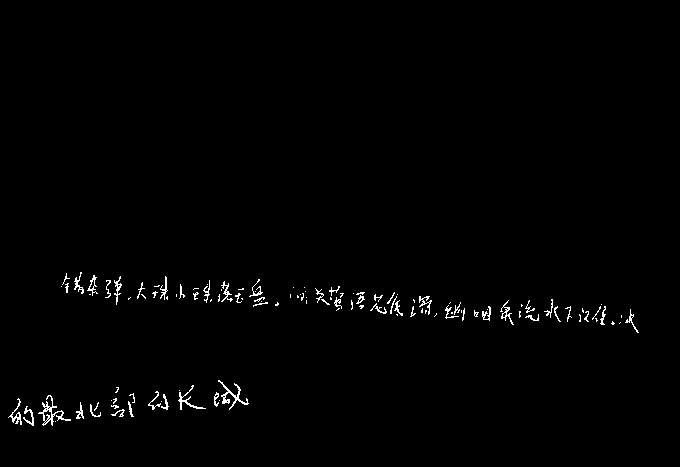 错杂弹,大珠小珠落玉盘。间关莺语花底滑,幽咽泉流水下滩。冰
的最北部的长城